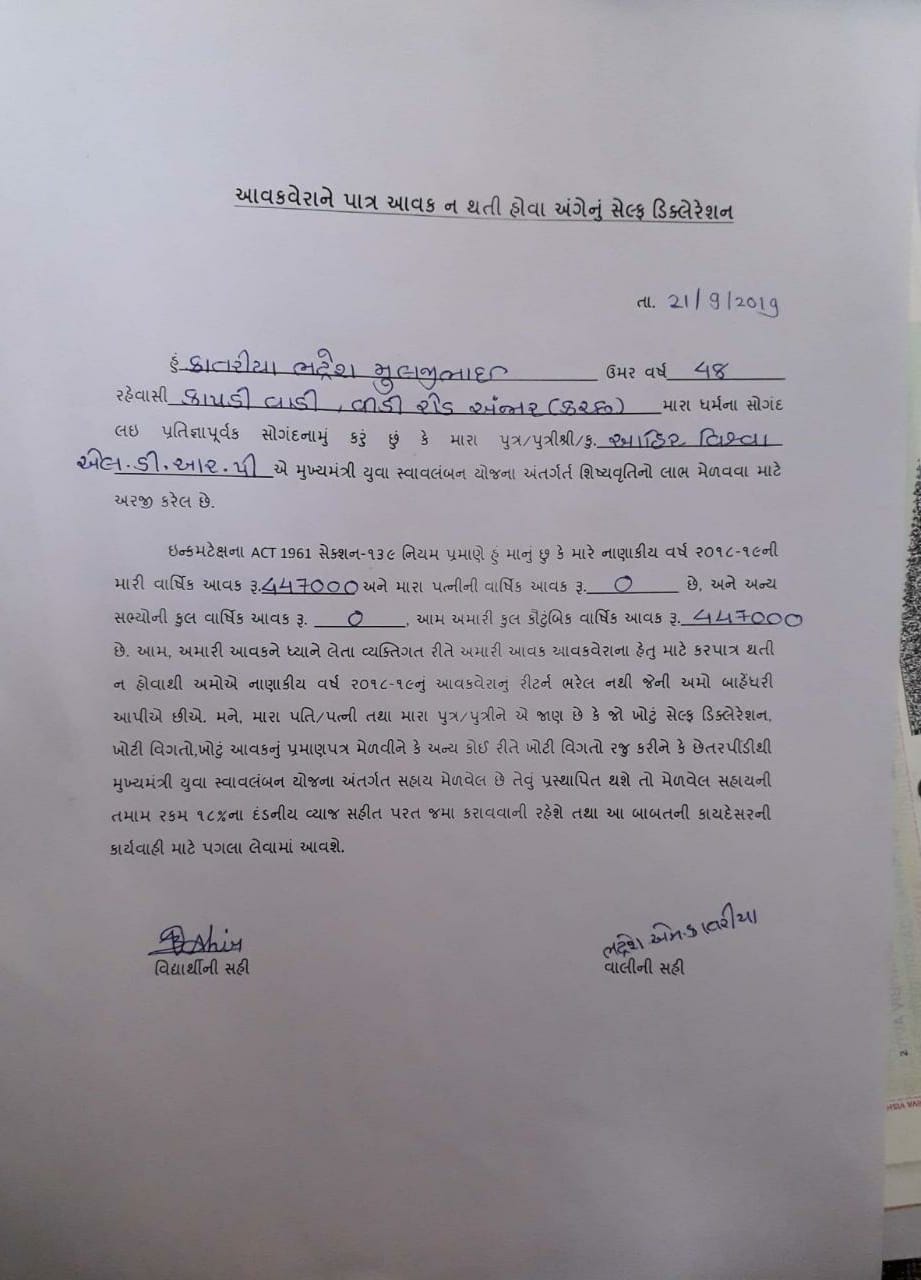 આવકવેરાને પાત્ર આવક ન થતી હોવા અંગેનું સેલ્ફ ડિક્લેરેશન
તા. 21/9/2019
હું કાતરીયા ભદ્રેશ મુલજીભાઇ ઉમર વર્ષ 48
રહેવાસી કાપડી વાડી, વીડી રોડ અંજાર (કચ્છ) મારા ધર્મના સોગંદ
લઇ પ્રતિજ્ઞાપૂર્વક સોગંદનામું કરું છું કે મારા પુત્ર/પુત્રીશ્રી/કુ. આહિર વિશ્વા
એલ.ડી.આર.પી એ મુખ્યમંત્રી યુવા સ્વાવલંબન યોજના અંતર્ગર્ત શિષ્યવૃતિનો લાભ મેળવવા માટે
અરજી કરેલ છે.
ઇન્કમટેક્ષના ACT 1961 સેક્શન-૧૩૯ નિયમ પ્રમાણે હું માનું છુ કે મારે નાણાકીય વર્ષ ૨૦૧૮-૧૯ની
મારી વાર્ષિક આવક રૂ.447000 અને મારા પત્નીની વાર્ષિક આવક રૂ. 0 છે, અને અન્ય
સભ્યોની કુલ વાર્ષિક આવક રૂ. 0 , આમ અમારી કુલ કૌટુંબિક વાર્ષિક આવક રૂ. 447000
છે. આમ, અમારી આવકને ધ્યાને લેતા વ્યક્તિગત રીતે અમારી આવક આવકવેરાના હેતુ માટે કરપાત્ર થતી
ન હોવાથી અમોએ નાણાકીય વર્ષ ૨૦૧૮-૧૯નું આવકવેરાનુ રીટર્ન ભરેલ નથી જેની અમો બાહેંધરી
આપીએ છીએ. મને, મારા પતિ/પત્ની તથા મારા પુત્ર/પુત્રીને એ જાણ છે કે જો ખોટું સેલ્ફ ડિક્લેરેશન,
ખોટી વિગતો,ખોટું આવકનું પ્રમાણપત્ર મેળવીને કે અન્ય કોઈ રીતે ખોટી વિગતો રજુ કરીને કે છેતરપીંડીથી
મુખ્યમંત્રી યુવા સ્વાવલંબન યોજના અંતર્ગત સહાય મેળવેલ છે તેવું પ્રસ્થાપિત થશે તો મેળવેલ સહાયની
તમામ રકમ ૧૮%ના દંડનીય વ્યાજ સહીત પરત જમા કરાવવાની રહેશે તથા આ બાબતની કાયદેસરની
કાર્યવાહી માટે પગલા લેવામાં આવશે.
ભદ્રેશ એમ.કાતરીયા
વિદ્યાર્થીની સહી
વાલીની સહી